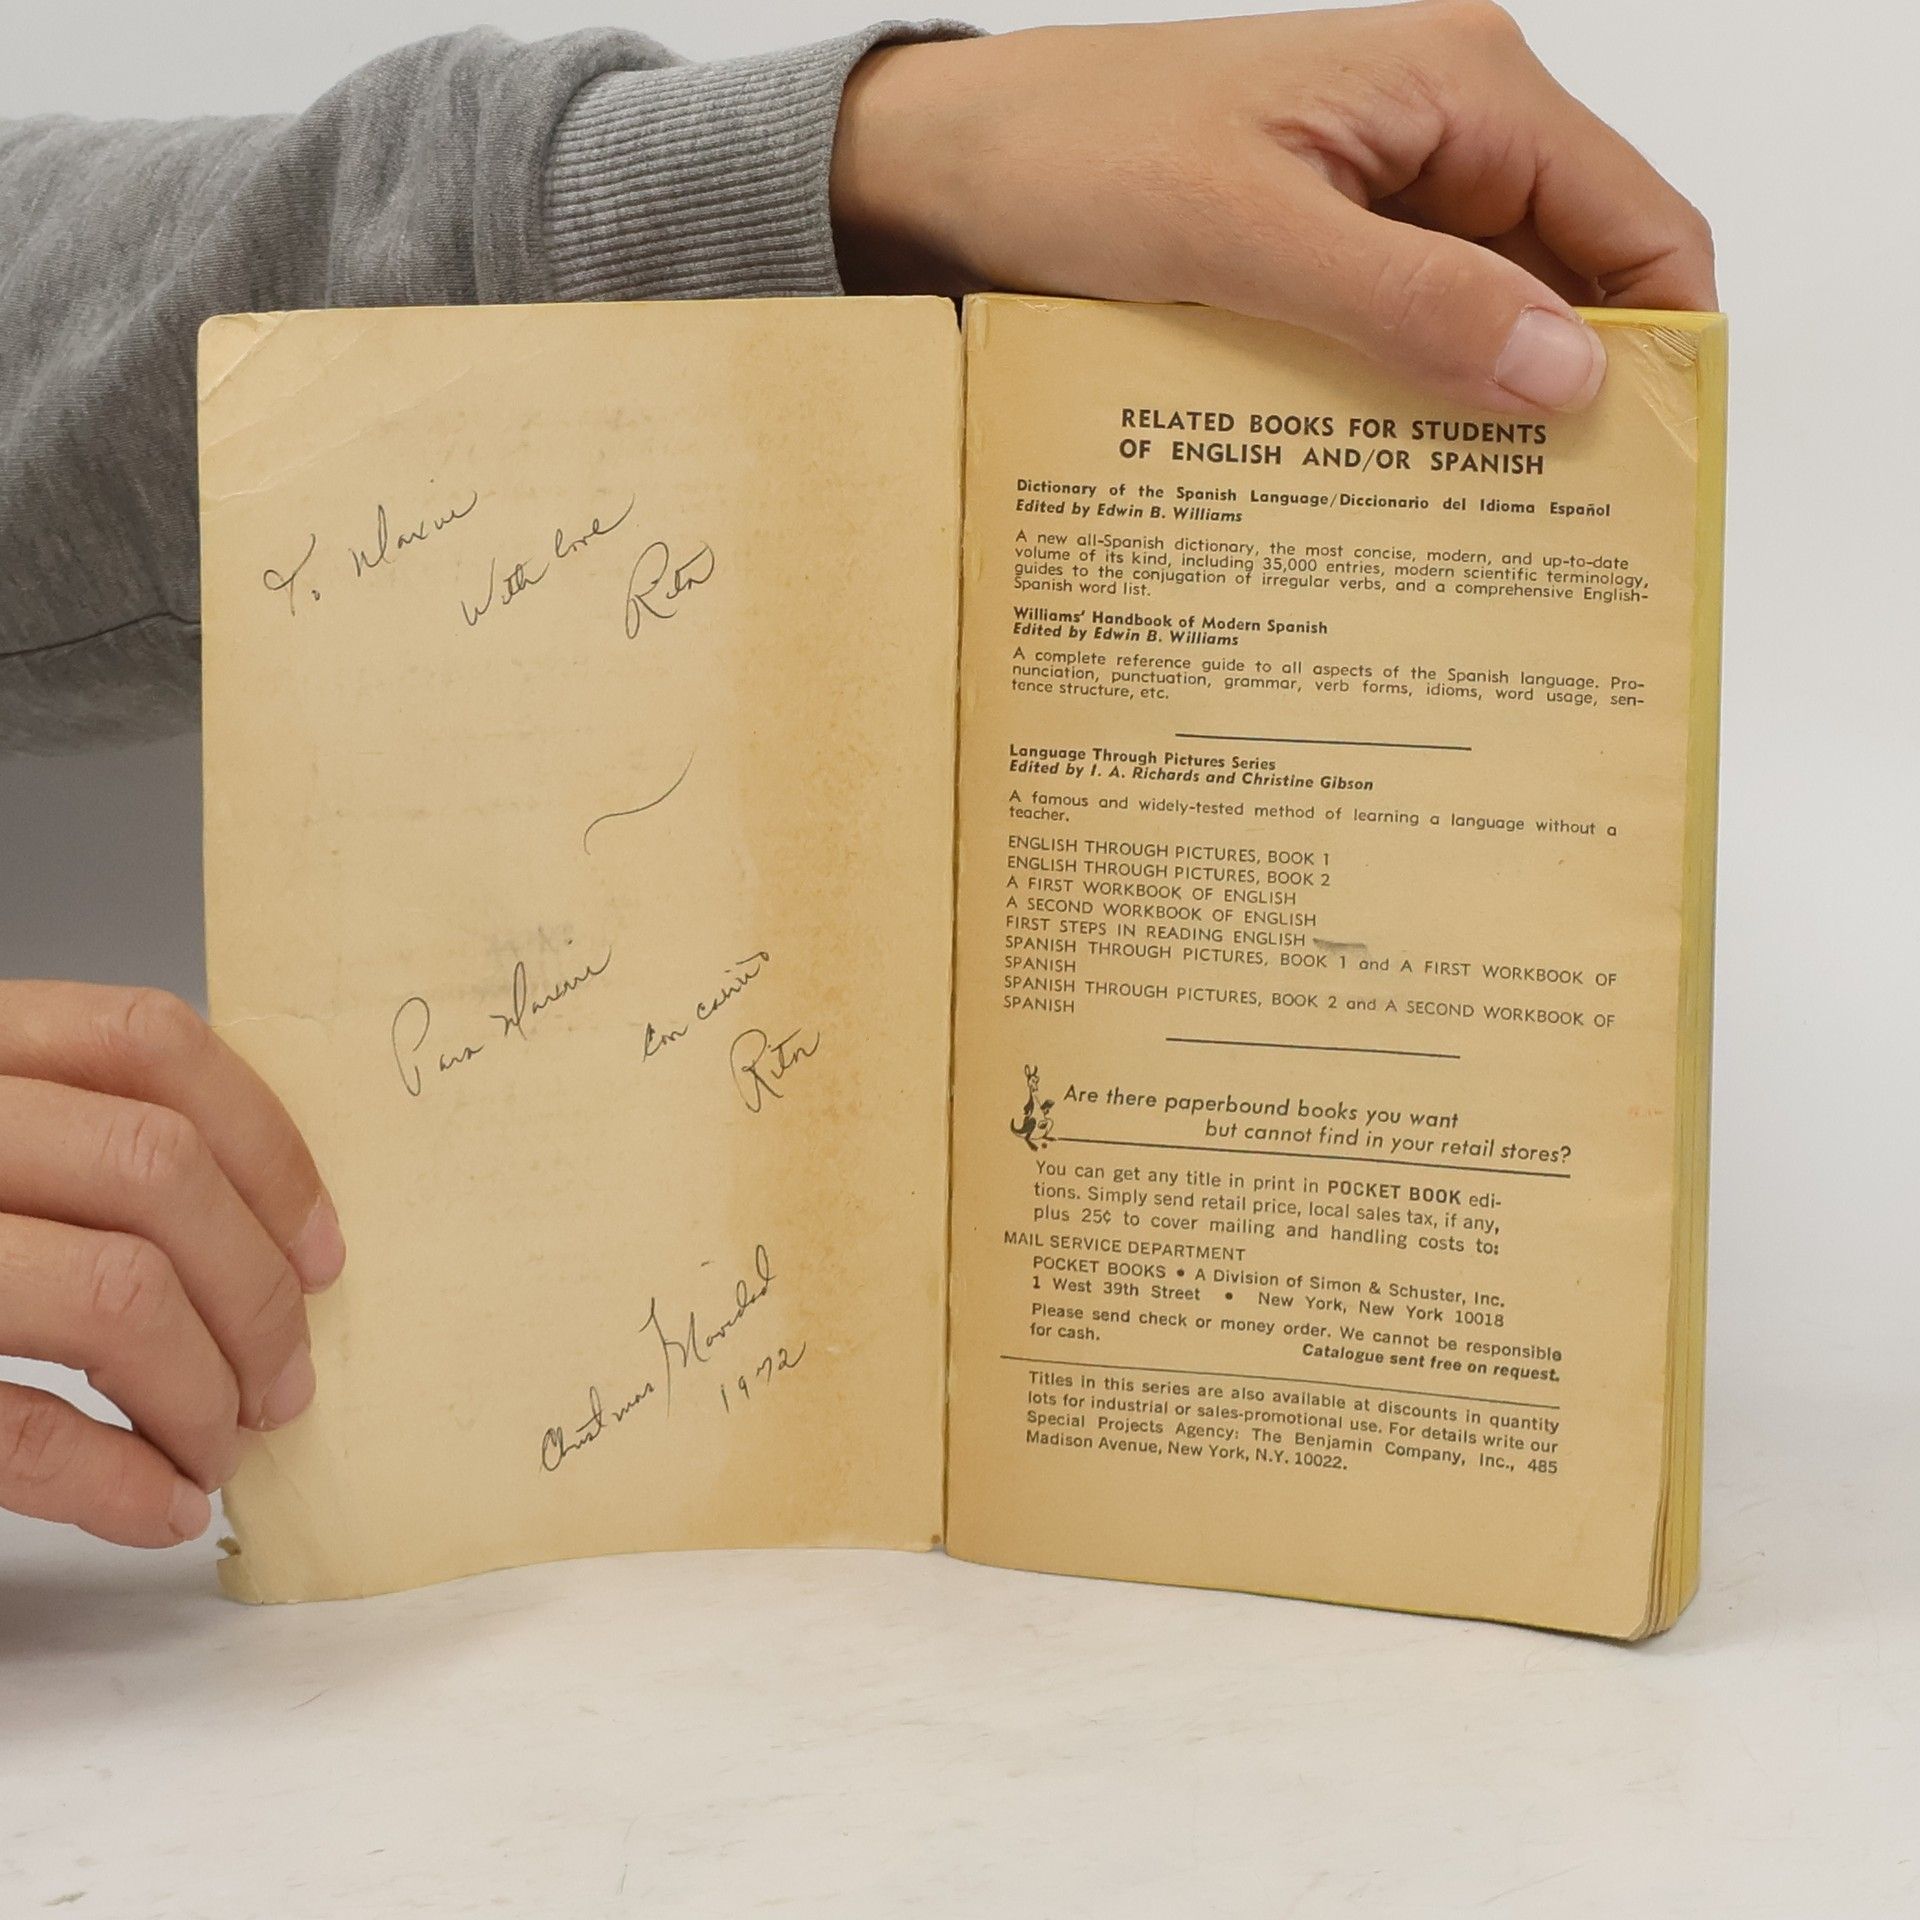 To Maxine
With love
Rita
Para Maxine
con cariño
Rita
Christmas/Navidad
1972
RELATED BOOKS FOR STUDENTS
OF ENGLISH AND/OR SPANISH
Dictionary of the Spanish Language/Diccionario del Idioma Español
Edited by Edwin B. Williams
A new all-Spanish dictionary, the most concise, modern, and up-to-date
volume of its kind, including 35,000 entries, modern scientific terminology,
guides to the conjugation of irregular verbs, and a comprehensive English-
Spanish word list.
Williams' Handbook of Modern Spanish
Edited by Edwin B. Williams
A complete reference guide to all aspects of the Spanish language. Pro-
nunciation, punctuation, grammar, verb forms, idioms, word usage, sen-
tence structure, etc.
Language Through Pictures Series
Edited by I. A. Richards and Christine Gibson
A famous and widely-tested method of learning a language without a
teacher.
ENGLISH THROUGH PICTURES, BOOK 1
ENGLISH THROUGH PICTURES, BOOK 2
A FIRST WORKBOOK OF ENGLISH
A SECOND WORKBOOK OF ENGLISH
FIRST STEPS IN READING ENGLISH
SPANISH THROUGH PICTURES, BOOK 1 and A FIRST WORKBOOK OF
SPANISH
SPANISH THROUGH PICTURES, BOOK 2 and A SECOND WORKBOOK OF
SPANISH
Are there paperbound books you want
but cannot find in your retail stores?
You can get any title in print in POCKET BOOK edi-
tions. Simply send retail price, local sales tax, if any,
plus 25¢ to cover mailing and handling costs to:
MAIL SERVICE DEPARTMENT
POCKET BOOKS • A Division of Simon & Schuster, Inc.
1 West 39th Street • New York, New York 10018
Please send check or money order. We cannot be responsible
for cash.
Catalogue sent free on request.
Titles in this series are also available at discounts in quantity
lots for industrial or sales-promotional use. For details write our
Special Projects Agency: The Benjamin Company, Inc., 485
Madison Avenue, New York, N.Y. 10022.